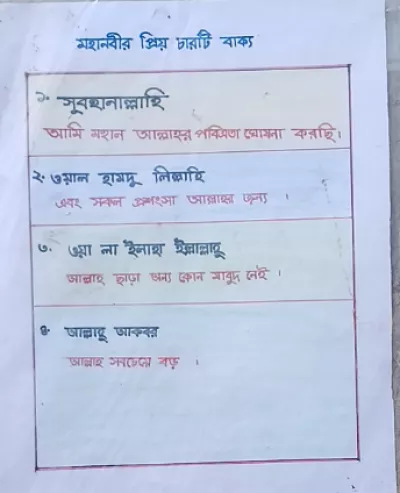 মহানবীর প্রিয় চারটি বাক্য
১. সুবহানাল্লাহি
আমি মহান আল্লাহর পবিত্রতা ঘোষনা করছি।
২. ওয়াল হামদু লিল্লাহি
এবং সকল প্রশংসা আল্লাহর জন্য ।
৩. ওয়া লা ইলাহা ইল্লাল্লাহু
আল্লাহ ছাড়া অন্য কোন মাবুদ নেই ।
৪. আল্লাহু আকবর
আল্লাহ সবচেয়ে বড় ।